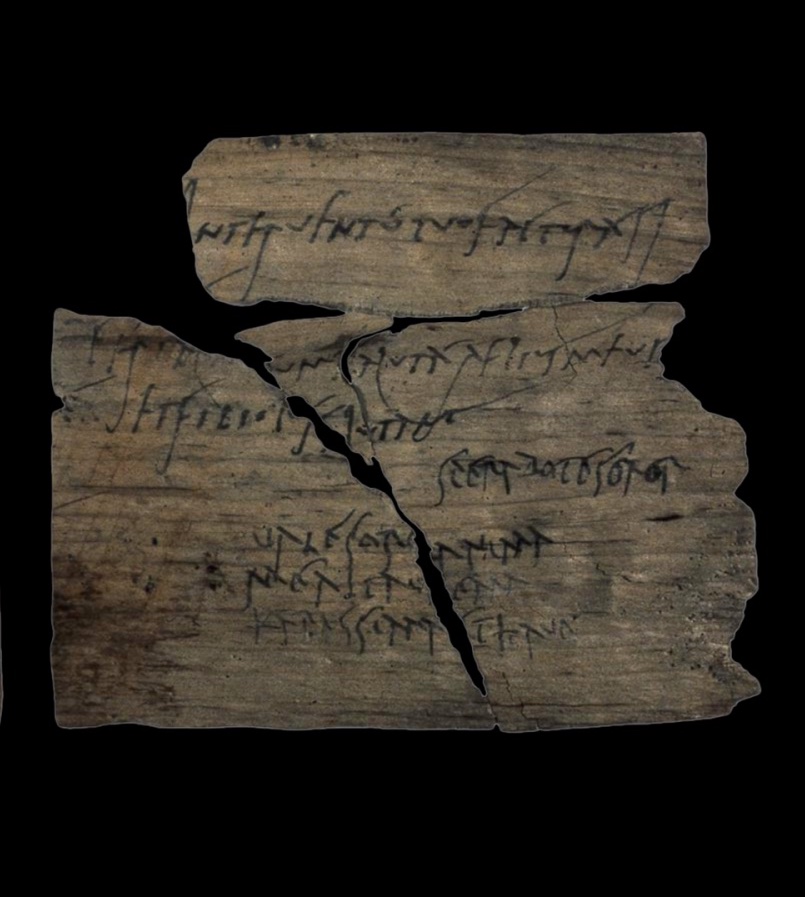 interventú tuo facturá si
Cerial uum salutá Aelius meus
et filiolus salutant
sperabo te soror
vale soror anima
mea ita valeam
karissima et have